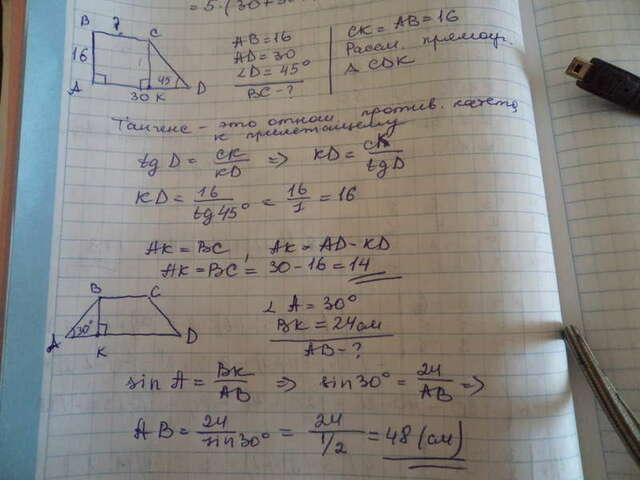 = 5 · (30 +
B ? C
16
45
A 30 K D
AB = 16
AD = 30
∠D = 45°
BC - ?
CK = AB = 16
Рассм. прямоуг.
Δ CDK
Тангенс - это отнош. против. катета
к прилежащему
tg D = CK/KD => KD = CK/tg D
KD = 16/tg 45° = 16/1 = 16
AK = BC, AK = AD - KD
AK = BC = 30 - 16 = 14
B C
A 30° K D
∠ A = 30°
BK = 24 см
AB - ?
sin A = BK/AB => sin 30° = 24/AB =>
AB = 24/sin 30° = 24/1/2 = 48 (см)